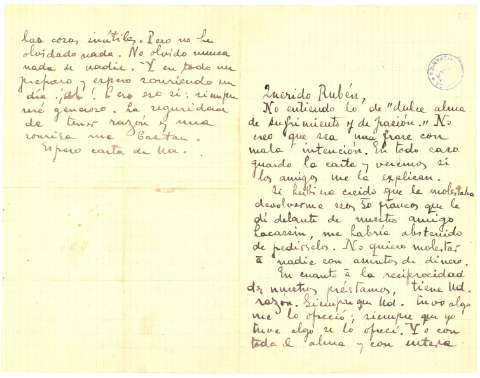 Querido Rubén,
No entiendo lo de "dulce alma
de sufrimiento y de pasión." No
creo que sea una frase con
mala intención. En todo caso
guardo la carta y veremos si
los amigos me la explican.
Si hubiera creído que le molestaba
devolverme esos 50 francos que le
dí delante de nuestro amigo
me habría abstenido
de pedírselos. No quiero molestar
à nadie con asuntos de dinero.
En cuanto à la reciprocidad
de nuestros préstamos, tiene Ud.
razon. Siempre que Ud. tuvo algo
me lo ofreció; siempre que yo
tuve algo se lo ofrecí. Yo con
toda el alma y con entera
las cosas inútiles. Pero no he
olvidado nada. No olvido nunca
nada ni nadie. Y en todo me
preparo y espero sonriendo un
día, Pero eso si; siempre
seré generoso. La seguridad
de tener razón y una
sonrisa me bastan.
Espero carta de Ud.